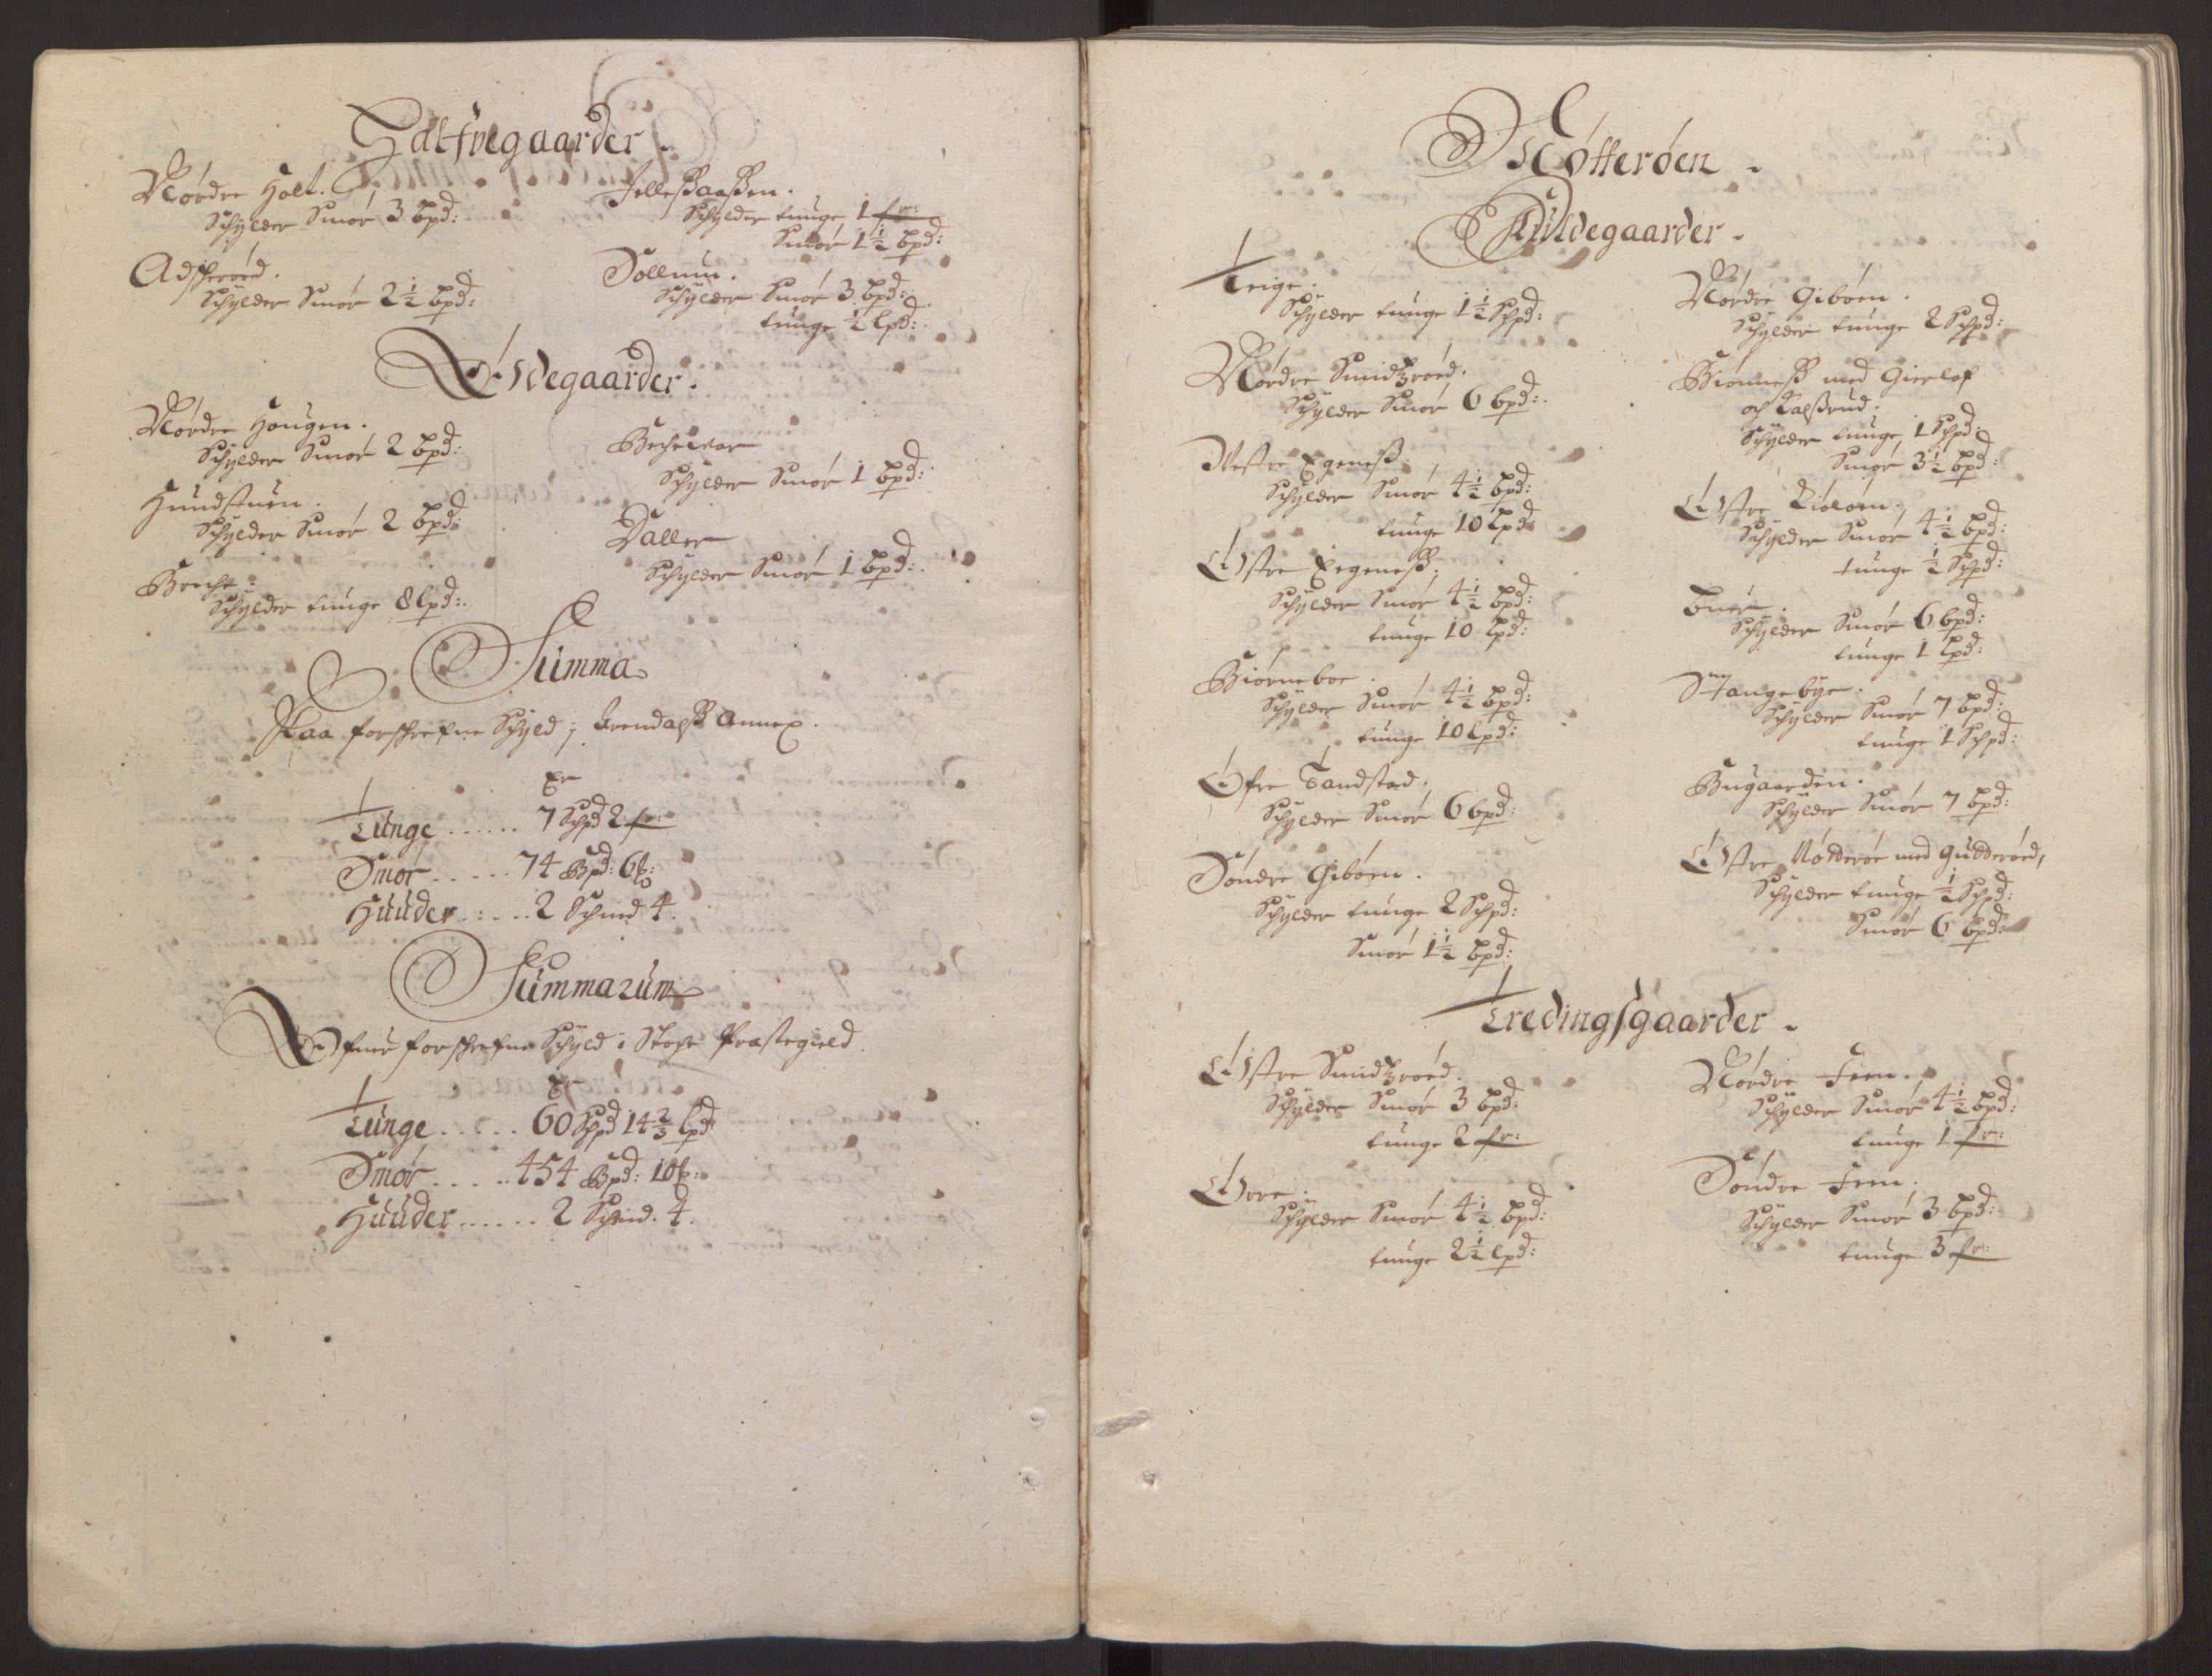 Halfvegaarder.
Nordre Holt.
Schylder Smór 3 bpd:
Adscheroed.
Schylder Smór 2½ bpd:
Jilleszaaszen.
Schylder tunge 1 fr:
Smór 1½ bpd:
Sollum.
Schylder Smór 3 bpd:
tunge ½ lpd:
Ødegaarder.
Nordre Hougen.
Schylder Smór 2 bpd:
Hundstuen.
Schylder Smór 2 bpd:
Breche:
Schylder tunge 8 lpd:
Bechevar
Schylder Smór 1 bpd:
Daller
Schylder Smór 1 bpd:
Summa
Paa forschrefne Schyld j Arendalsz Annex.
Er
Tunge ...... 7 Schpd 2 fr:
Smór ..... 74 Bpd: 6 ß:
Huuder ..... 2 Schind 4.
Summarum
Ofver forschrefne Schyld i Stoche Præstegield.
Er
Tunge ..... 60 Schpd 14⅔ lpd:
Smór ..... 454 Bpd: 10 ß:
Huuder ...... 2 Schind. 4.
Nótterøen.
Fuldegaarder.
Teige.
Schylder tunge 1½ Schpd:
Nordre Smidzroed.
Schylder Smór 6 bpd:
Vestre Egenesz.
Schylder Smór 4½ bpd:
tunge 10 lpd:
Østre Eegenesz.
Schylder Smór 4½ bpd:
tunge 10 lpd:
Biørneboe.
Schylder Smór 4½ bpd:
tunge 10 lpd:
Øfre Sandstad.
Schylder Smór 6 bpd:
Søndre Gibøen.
Schylder tunge 2 Schpd:
Smór 1½ bpd:
Nordre Gibøen.
Schylder tunge 2 Schpd:
Biønnesz med Gierlof
och Kalszrud.
Schylder tunge 1 Schpd:
Smór 3½ bpd:
Østre Kiøløen.
Schylder Smór 4½ bpd:
tunge ½ Schpd:
Buer.
Schylder Smór 6 bpd:
tunge 1 lpd:
Stangebye.
Schylder Smór 7 bpd:
tunge 1 Schpd:
Bugaarden.
Schylder Smór 7 bpd:
Østre Nótterøe med Gudderøed,
Schylder tunge ½ Schpd:
Smór 6 bpd:
Tredingsgaarder.
Østre Smidzroed.
Schylder Smór 3 bpd:
tunge 2 fr:
Ørre.
Schylder Smór 4½ bpd:
tunge 2½ lpd:
Nordre Feen.
Schylder Smór 4½ bpd:
tunge 1 fr:
Søndre Feen.
Schylder Smór 3 bpd:
tunge 3 fr: